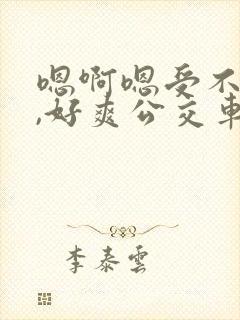 嗯啊嗯受不
,好爽公交车
李泰雲